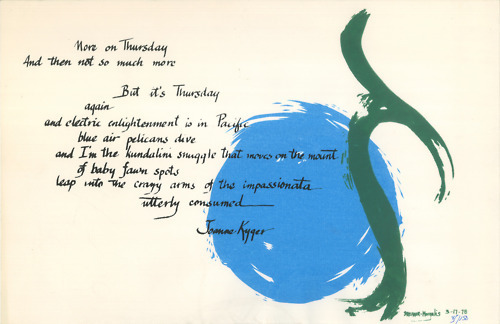 More on Thursday
And then not so much more
But it's Thursday
again
and electric enlightenment is in Pacific
blue air pelicans dive
and I'm the kundalini snuggle that moves on the mount
of baby fawn spots
leap into the crazy arms of the impassionata
utterly consumed
Joanne Kyger
3-17-78